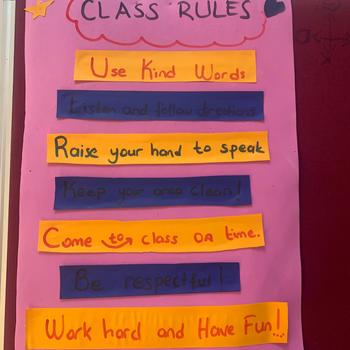 CLASS RULES
Use Kind Words
Listen and follow directions
Raise your hand to speak
Keep your area clean!
Come to class on time.
Be respectful!
Work hard and Have Fun!